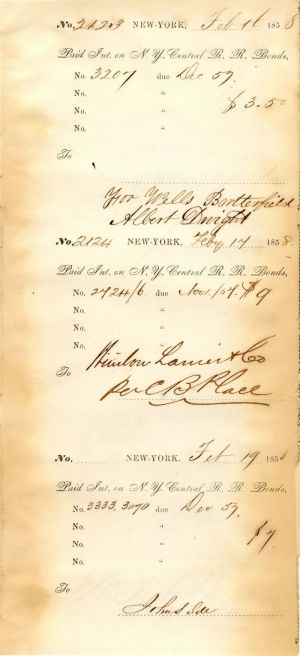 No. 2123 NEW-YORK, Feb 16 1858
Paid Int. on N. Y. Central R. R. Bonds,
No. 3207 due Dec 57.
No. "
No. " $3.50
No. "
To
For Wells Butterfield
Albert Dwight
No. 2124 NEW-YORK, Feby 17 1858.
Paid Int. on N. Y. Central R. R. Bonds,
No. 2724/6 due Nov. /57. $9
No. "
No. "
No. "
To Winslow Lanier & Co
per C B Place
No. NEW-YORK, Feb 19 185
Paid Int. on N. Y. Central R. R. Bonds,
No. 3333, 3070 due Dec 57.
No. "
No. " $7
No. "
To
John